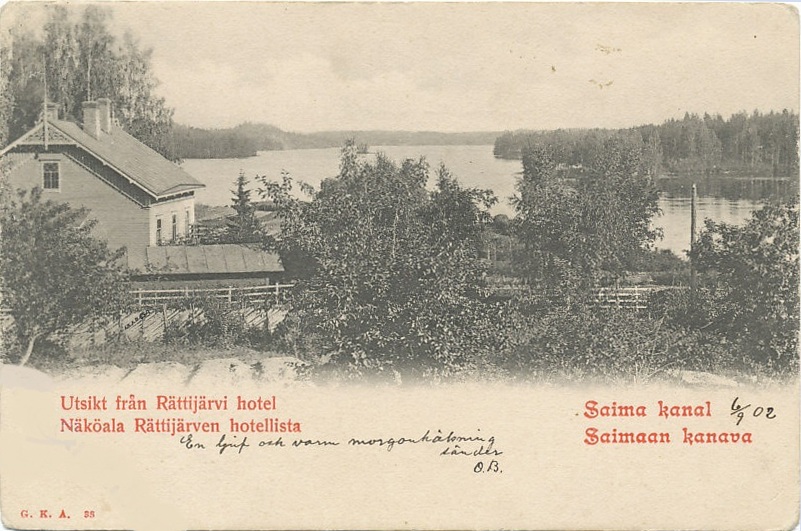 Utsikt från Rättijärvi hotel
Näköala Rättijärven hotellista
Saima kanal 6/9 02
Saimaan kanava
En ljuf och varm morgonhälsning
sänder
O.B.
G. K. A. 38